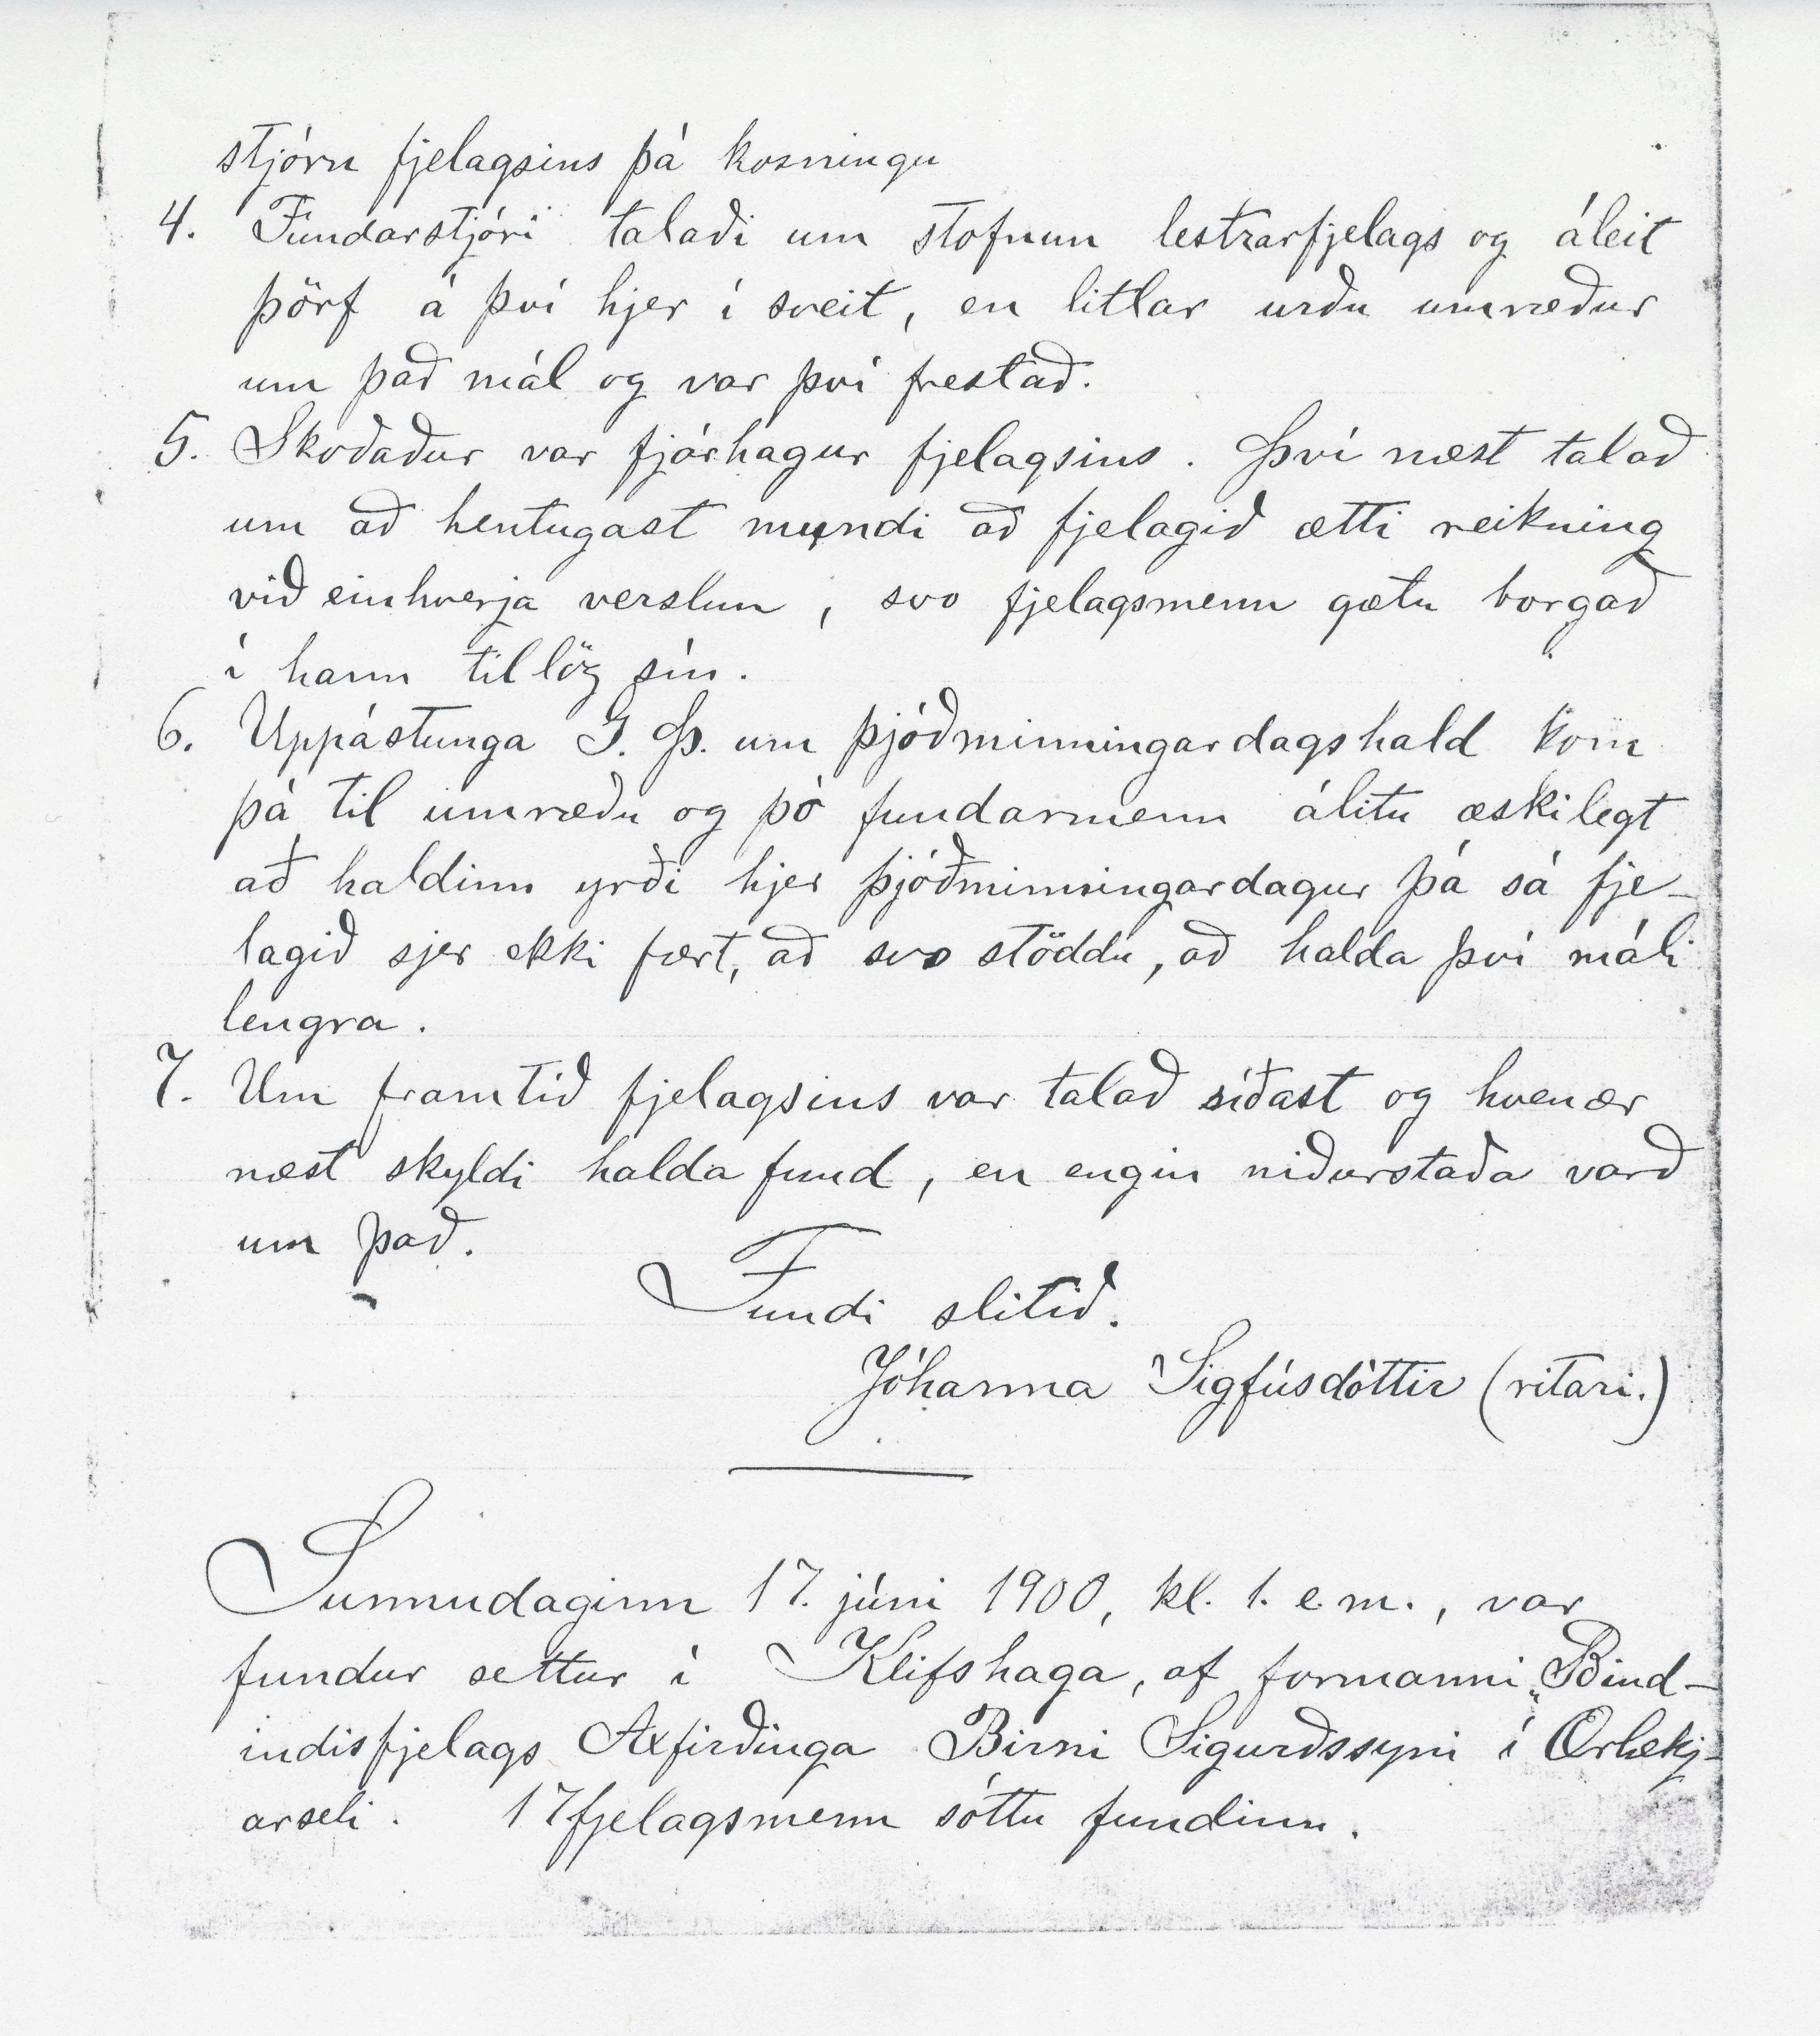 stjórn fjelagsins þá kosningu
4. Fundarstjóri talaði um stofnun lestrarfjelags og áleit
þörf á því hjer í sveit, en litlar urðu umræður
um það mál og var því frestað.
5. Skoðaður var fjárhagur fjelagsins. Því næst talað
um að hentugast mundi að fjelagið ætti reikning
við einhverja verslun, svo fjelagsmenn gætu borgað
í hann tillög sín.
6. Uppástunga G. Þ. um þjóðminningardagshald kom
þá til umræðu og þó fundarmenn álitu æskilegt
að haldinn yrði hjer þjóðminningardagur þá sá fje-
lagið sjer ekki fært, að svo stöddu, að halda því máli
lengra.
7. Um framtíð fjelagsins var talað síðast og hvenær
næst skyldi halda fund, en engin niðurstaða varð
um það.
Fundi slitið.
Jóhanna Sigfúsdóttir (ritari.)
Sunnudaginn 17. júní 1900, kl. 1. e.m., var
fundur settur í Klifshaga, af formanni „Bind-
indisfjelags Axfirðinga Birni Sigurðssyni í Ærlækj-
arseli. 17 fjelagsmenn sóttu fundinn.